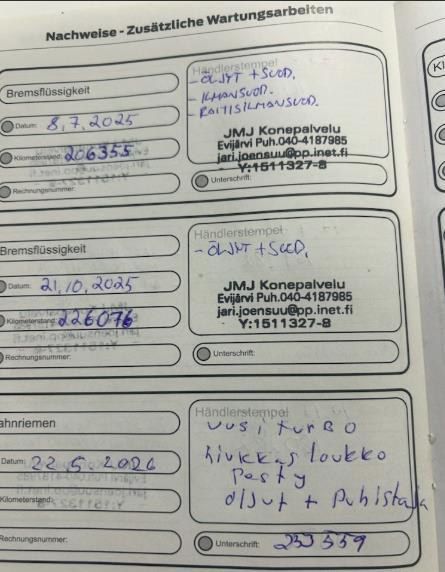 Nachweise - Zusätzliche Wartungsarbeiten
Bremsflüssigkeit
Datum: 8.7.2025
Kilometerstand: 206355
Rechnungsnummer:
Händlerstempel
- ÖLJYT + SUOD.
- ILMANSUOD.
- RAITISILMANSUOD.
JMJ Konepalvelu
Evijärvi Puh.040-4187985
jari.joensuu@pp.inet.fi
Y:1511327-8
Unterschrift:
Bremsflüssigkeit
Datum: 21.10.2025
Kilometerstand: 226076
Rechnungsnummer:
Händlerstempel
- ÖLJYT + SUOD.
JMJ Konepalvelu
Evijärvi Puh.040-4187985
jari.joensuu@pp.inet.fi
Y:1511327-8
Unterschrift:
ahnriemen
Datum: 22.5.2026
Kilometerstand:
Rechnungsnummer:
Händlerstempel
uusi turbo
hiukkasloukko
pesty
öljyt + puhistaja
Unterschrift: 233559